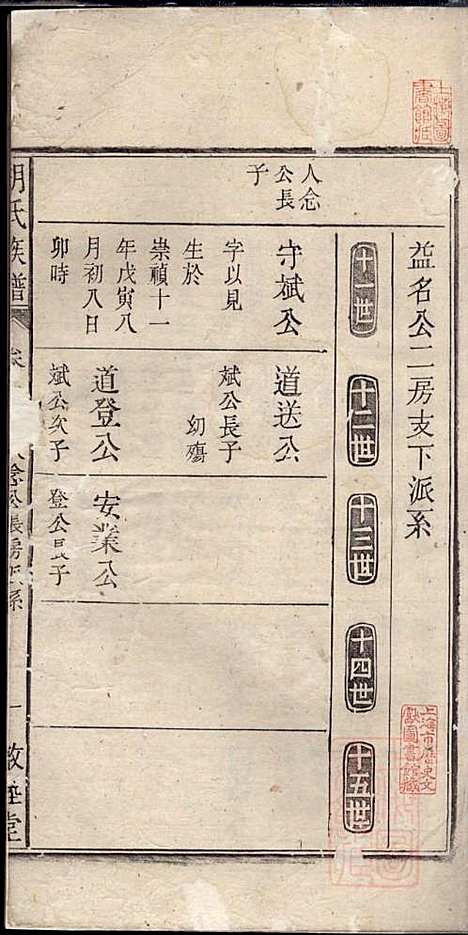 益名公二房支下派系
十一世
十二世
十三世
十四世
十五世
人念
公長
子
守斌公
字以見
生於
崇禎十一
年戊寅八
月初八日
卯時
道送公
斌公長子
幼殤
道登公
斌公次子
安業公
登公長子
胡氏族譜
卷
人念公長房派系
一
敦睦堂
上海市歷史文
獻圖書館藏